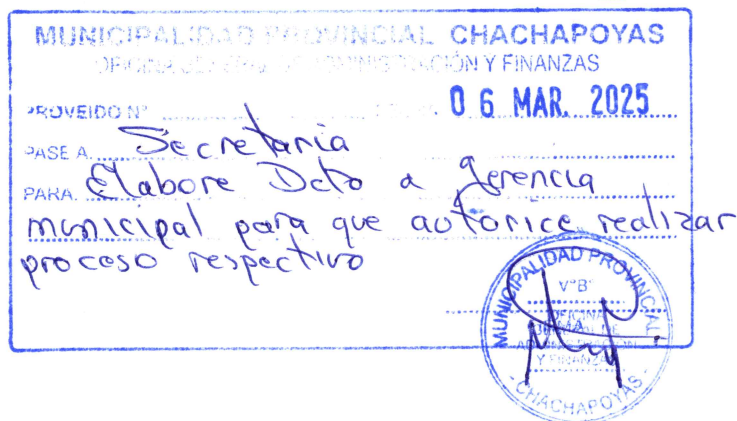 MUNICIPALIDAD PROVINCIAL CHACHAPOYAS
OFICINA GENERAL DE ADMINISTRACIÓN Y FINANZAS
PROVEIDO N°
06 MAR. 2025
PASE A. Secretaria
PARA. Elabore Dcto a gerencia
municipal para que autorice realizar
proceso respectivo
MUNICIPALIDAD PROVINCIAL
V°B°
OFICINA
GENERAL DE
ADMINISTRACION
Y FINANZAS
- CHACHAPOYAS -